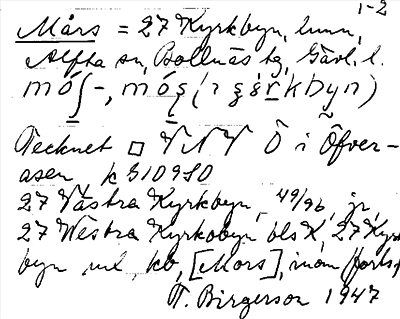 1-2
Mårs = 27 Kyrkbyn, hmn,
Alfta sn, Bollnäs tg, Gävl. l.
Tecknet □ VNV Ö i Öfver-
åsen k G10980
27 Västra Kyrkbyn, 49/96, jr
27 Westra Kyrkobyn bls X, 27 Kyrk
byn ml, kb, [Mors], inom (forts)
T. Birgerson 1947